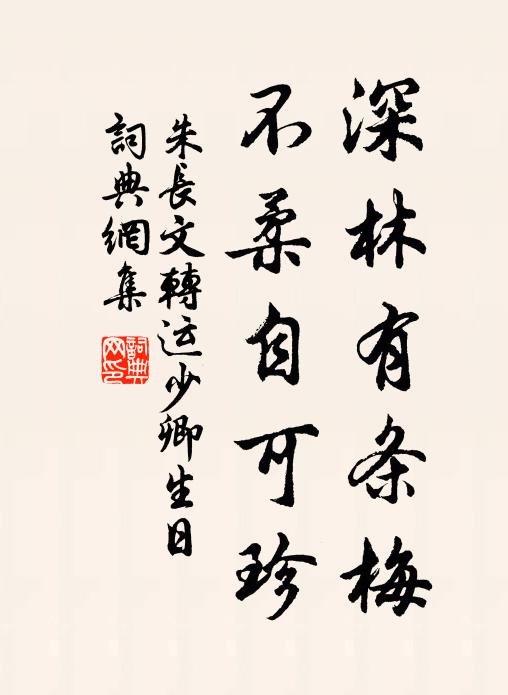 深林有条梅
不柔自可珍
朱長文轉运少卿生日
詞典網集
詞典
网印